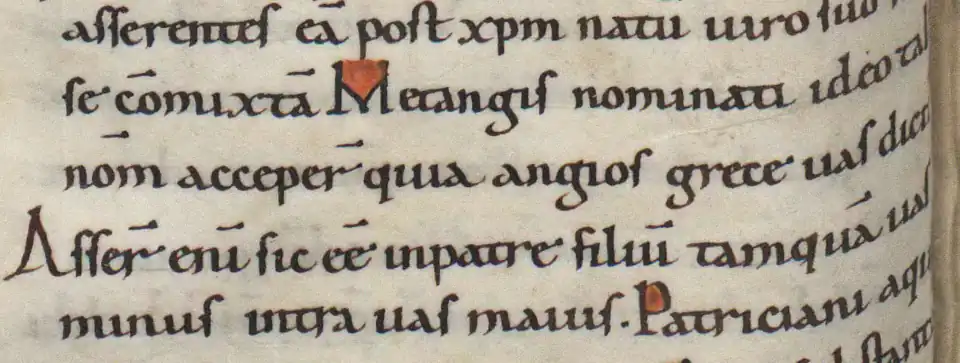 asserentes eā post xpm natū uiro suo
se cōmixtā Metangis nominati ideo tal
nōm acceper̄ quia angios grece uas dict
Asser̄ enī sic eē inpatre filiū tamquā uas
minus intra uas maius. Patriciani aqu